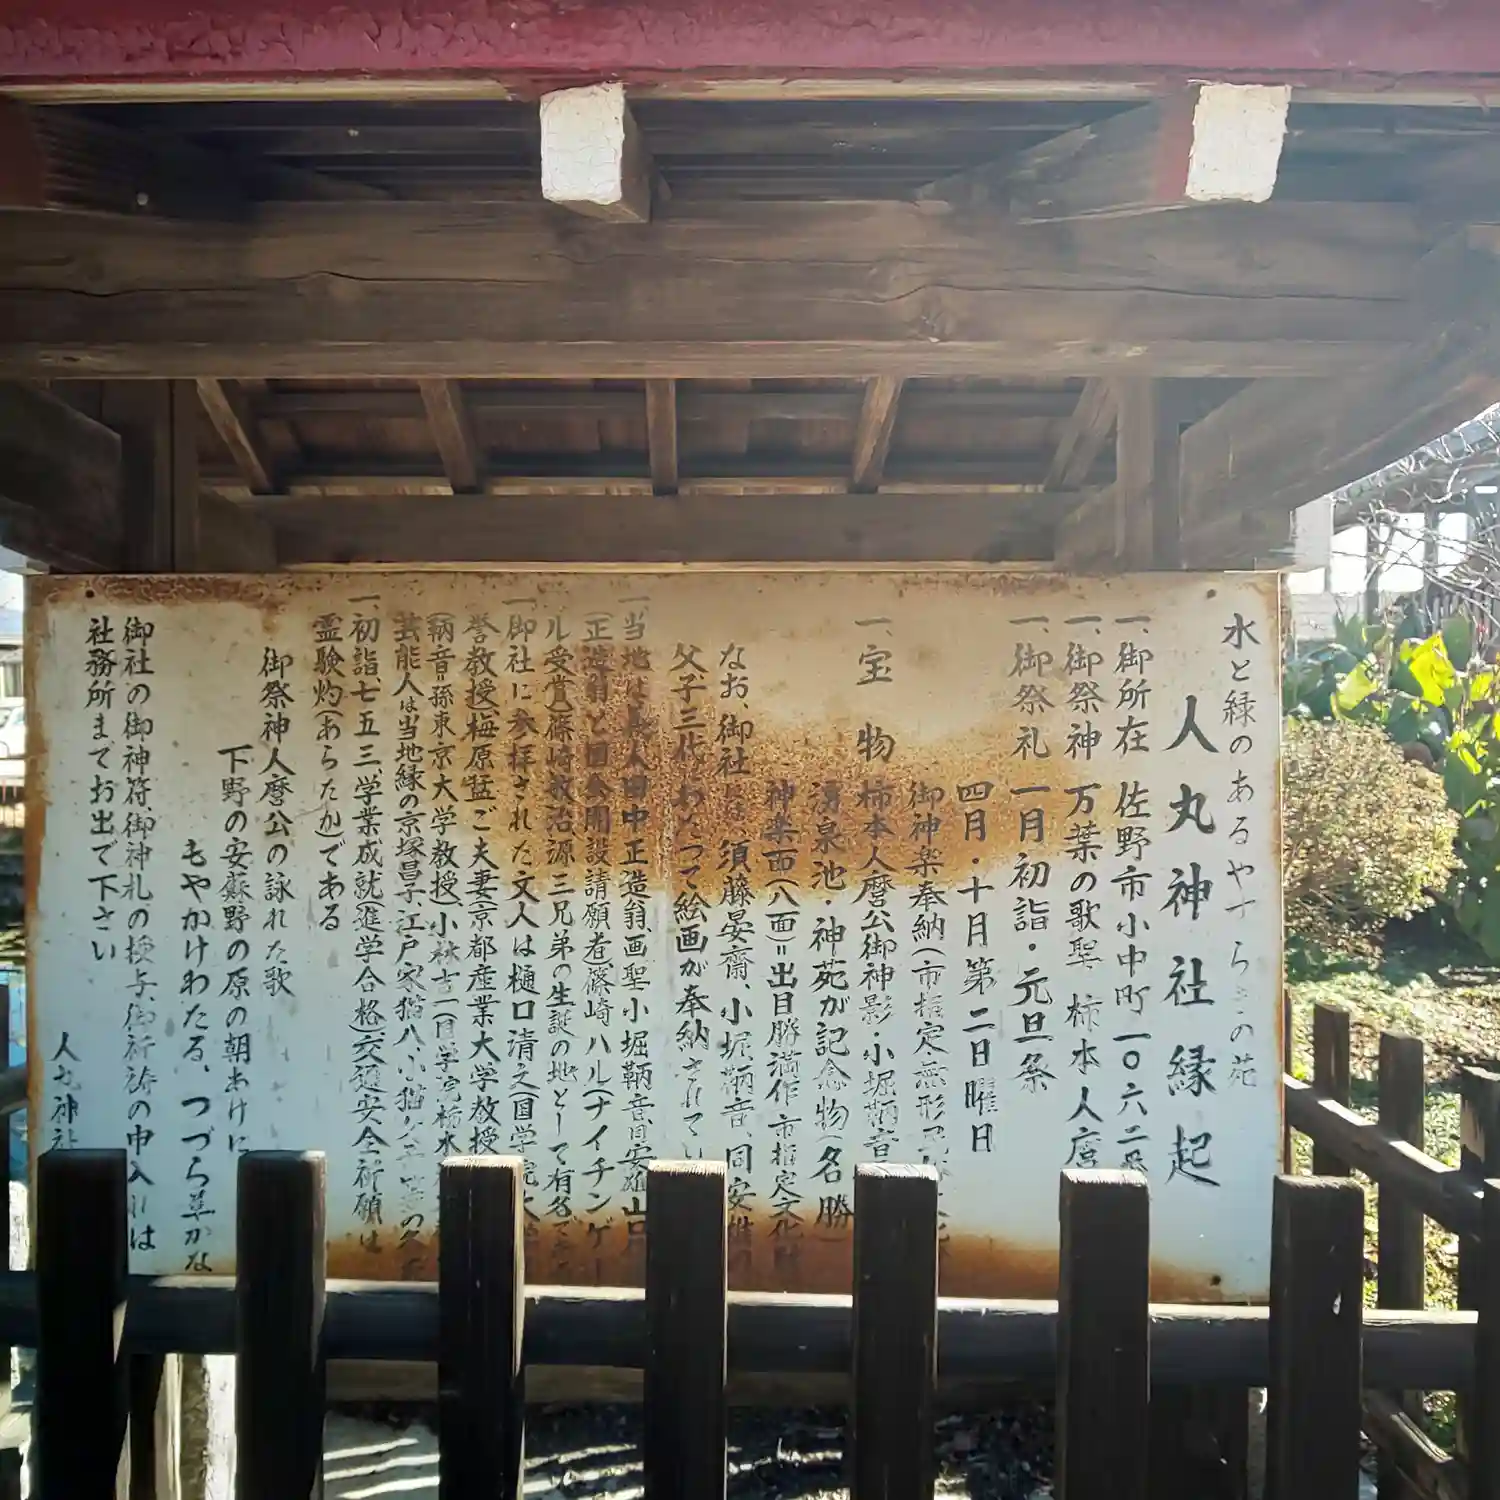 水と緑のあるやすらぎの苑
人丸神社縁起
一、御所在 佐野市小中町一〇六二番
一、御祭神 万葉の歌聖 柿本人麿
一、御祭礼 一月初詣・元旦祭
四月・十月第二日曜日
御神楽奉納(市指定無形
一、宝物 柿本人麿公御神影・小堀鞆音
湧泉池・神苑が記念物(名勝)
神楽面(八面)=出目勝満作 市指定文化財
なお、御社には、須藤晏齋、小堀鞆音、同安雄の
父、子三代にわたって絵画が奉納されてい
一、当地は義人田中正造翁、画聖小堀鞆音、同安雄、山口
(正造翁と国会開設請願者)、篠崎ハル(ナイチンゲー
ル受賞)、篠崎教治源三兄弟の生誕の地として有名で
一、御社に参拝された文人は樋口清之(国学院大
誉教授)、梅原猛ご夫妻(京都産業大学教授
(鞆音=孫東京大学教授)、小林吉一(国学院栃木
芸能人は当地縁の京塚昌子、江戸家猫八、小猫
一、初詣、七五三、学業成就(進学合格)、交通安全祈願は
霊験灼(あらたか)である
御祭神人麿公の詠れた歌
下野の安蘇野の原の朝あけに
もやかけわたる、つづら草かな
御社の御神符、御神札の授与、御祈祷の申入れは
社務所までお出で下さい
人丸神社